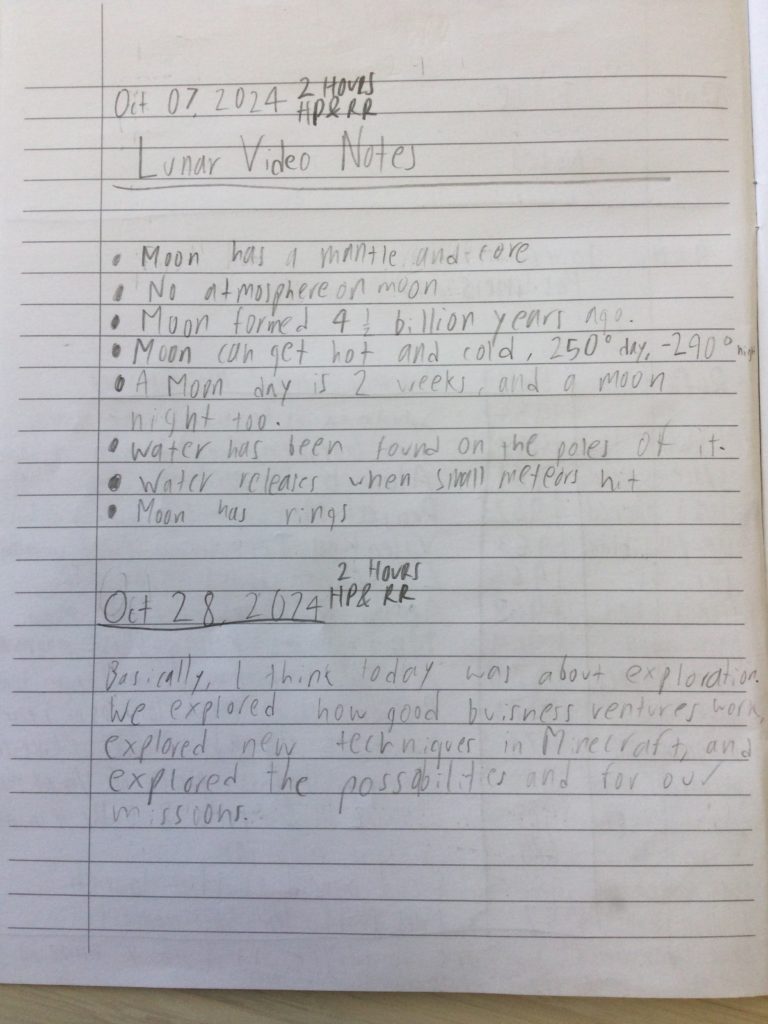 Oct 07, 2024 2 HOURS
HP & RR
Lunar Video Notes
• Moon has a mantle and core
• No atmosphere on moon
• Moon formed 4 ½ billion years ago.
• Moon can get hot and cold, 250° day, -290° night
• A Moon day is 2 weeks, and a moon
night too.
• Water has been found on the poles of it.
• Water releases when small meteors hit
• Moon has rings
2 HOURS
Oct 28, 2024 HP& RR
Basically, I think today was about exploration.
We explored how good buisness ventures work,
explored new techniques in Minecraft, and
explored the possabilities and for our
missions.